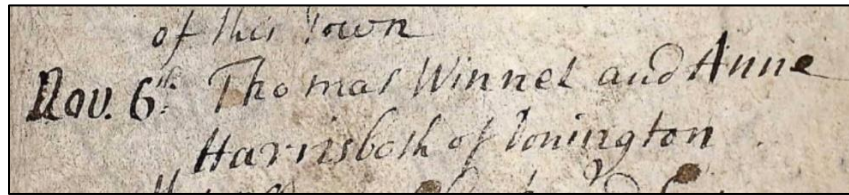 of this Town
Nov. 6th: Thomas Winnel and Anne
Harris both of Donington